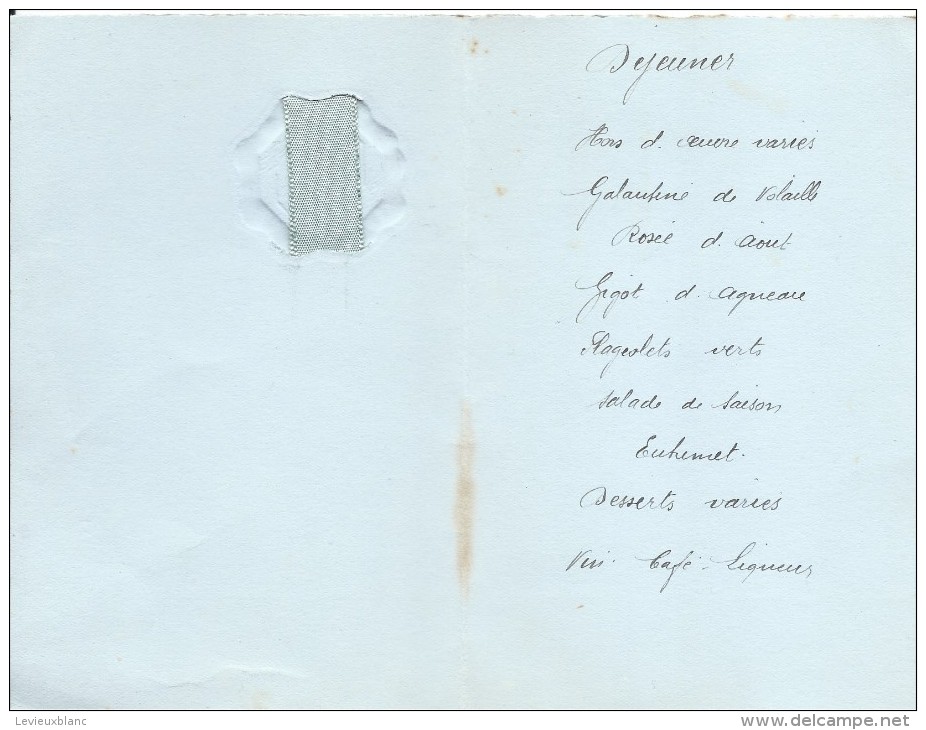 Déjeuner
Hors d'œuvre variés
Galantine de Volaille
Rosée d'août
Gigot d'agneau
Flageolets verts
Salade de saison
Entremet.
Desserts variés
Vin - Café - Liqueurs
Levieuxblanc
www.delcampe.net